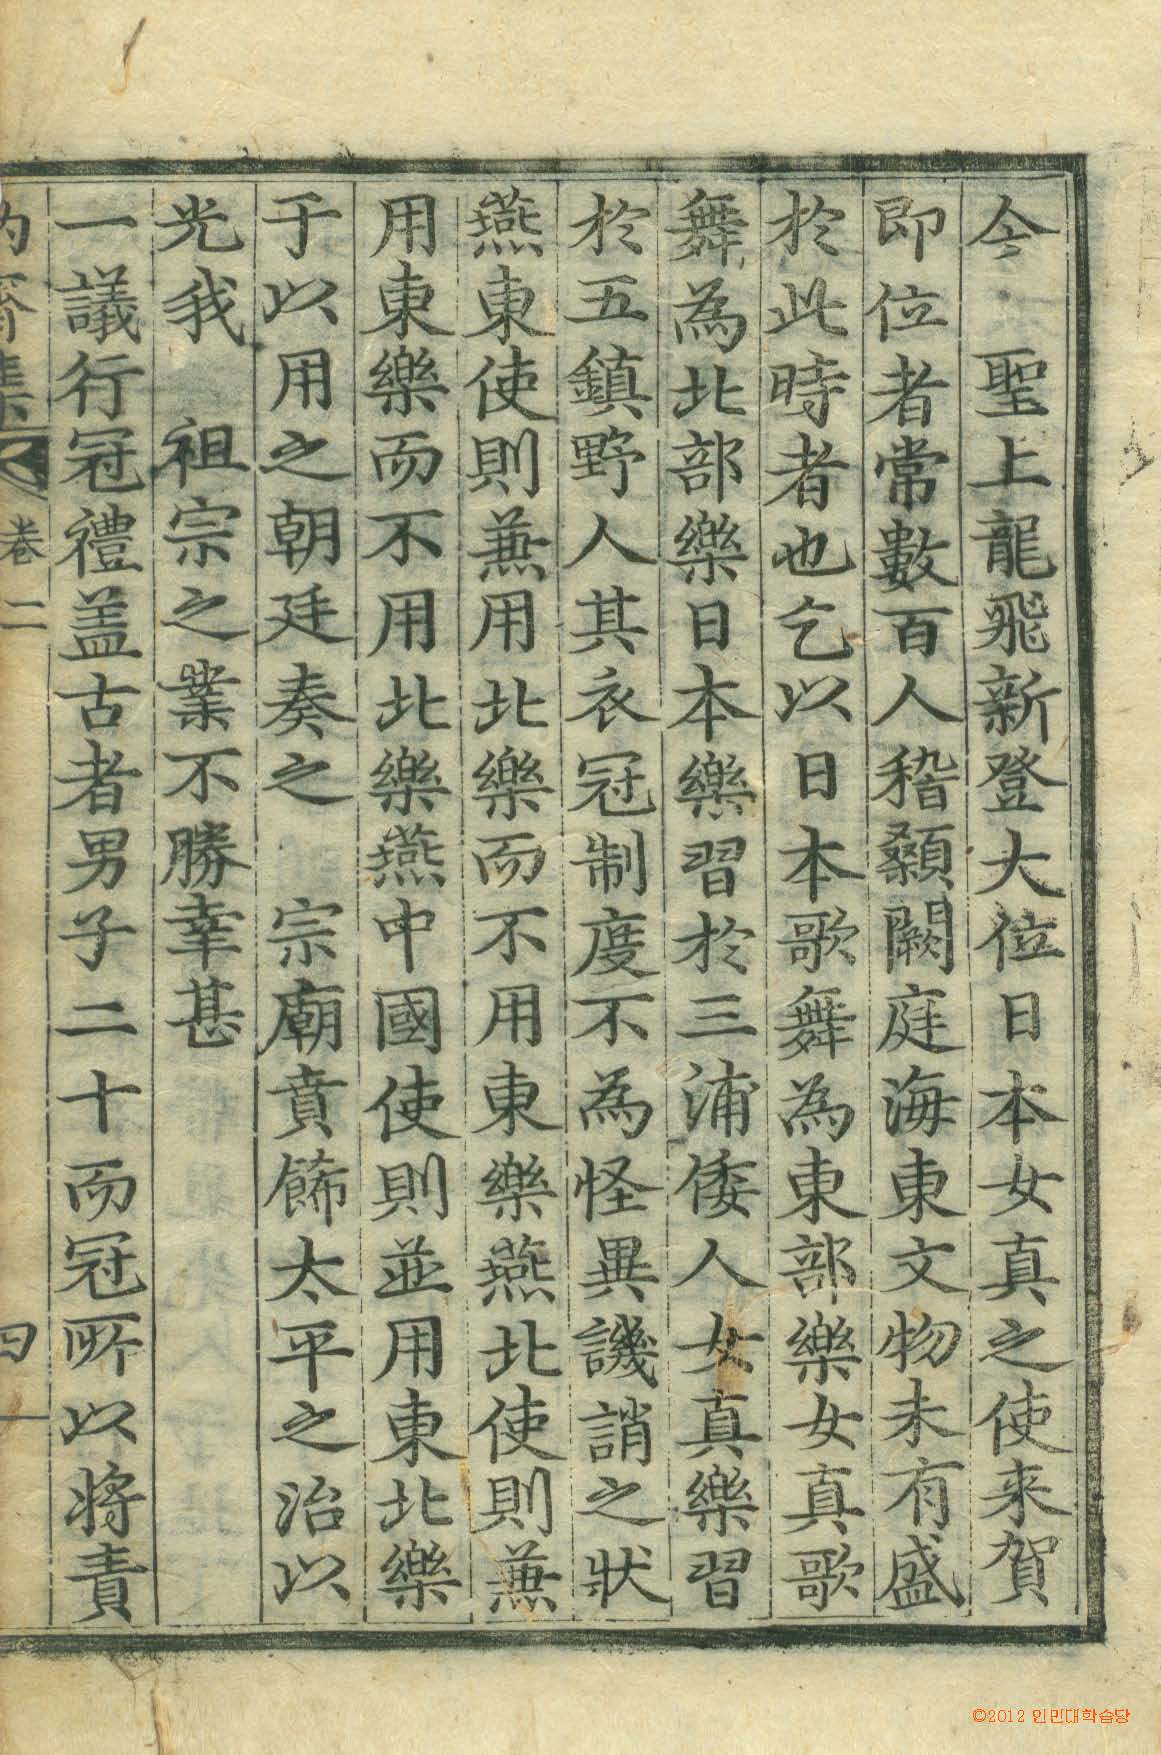 今 聖上龍飛新登大位日本女真之使来賀
即位者常數百人稽顙闕庭海東文物未有盛
於此時者也乞以日本歌舞為東部樂女真歌
舞為北部樂日本樂習於三浦倭人女真樂習
於五鎮野人其衣冠制度不為怪異譏誚之狀
燕東使則兼用北樂而不用東樂燕北使則兼
用東樂而不用北樂燕中國使則並用東北樂
于以用之朝廷奏之 宗廟賁飾太平之治以
光我 祖宗之業不勝幸甚
一議行冠禮盖古者男子二十而冠所以將責
齋集 卷二 四
©2012 인민대학습당